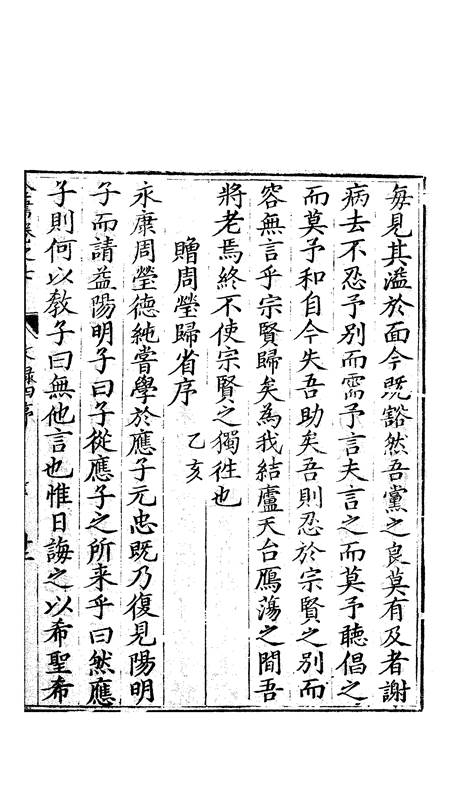 每見其溢於面今既豁然吾黨之良莫有及者謝
病去不忍予別而需予言夫言之而莫予聽倡之
而莫予和自今失吾助矣吾則忍於宗賢之別而
容無言乎宗賢歸矣為我結廬天台鴈蕩之間吾
將老焉終不使宗賢之獨往也
贈周瑩歸省序 乙亥
永康周瑩德純嘗學於應子元忠既乃復見陽明
子而請益陽明子曰子從應子之所来乎曰然應
子則何以教子曰無他言也惟日誨之以希聖希